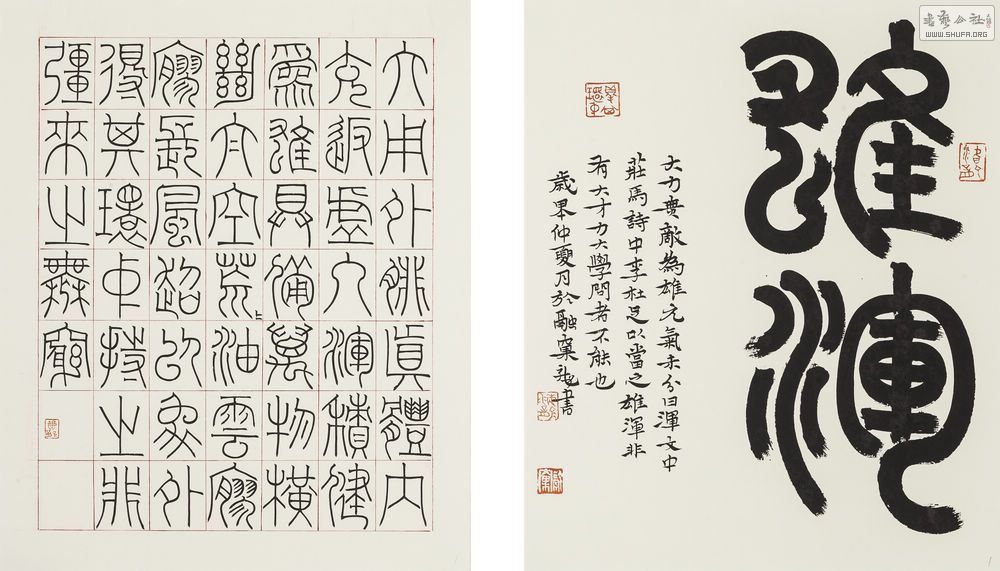 雄渾
大力無敵為雄元氣未分曰渾文中
莊馬詩中李杜足以當之雄渾非
有大才力大學問者不能也
歲仲夏月於融窠書
大用外腓真體内
充返虛入渾積健
為雄具備萬物橫
絕太空荒〻油雲寥
寥長風超以象外
得其環中持之非
彊來之無窮
書藝公社
WWW.SHUFA.ORG